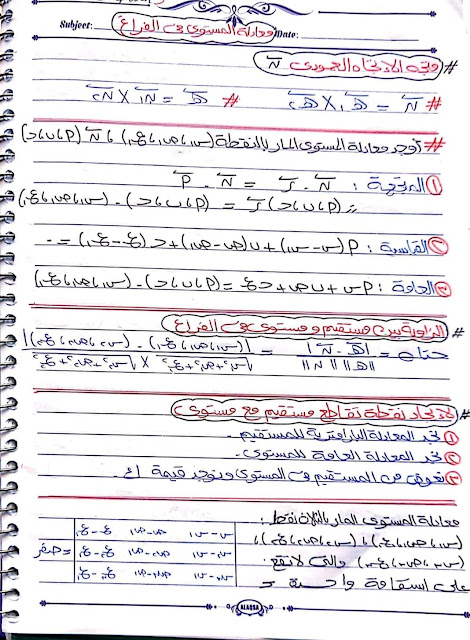 Subject: معادلة المستوى فى الفراغ Date:
# متجه الاتجاه العمودى N
# N = هـ₁ X هـ₂ # هـ = N₁ X N₂
# أوجد معادلة المستوى المار بالنقطة (س₁، ص₁، ع₁) ، N (P، ب، د)
① المتجهة : N . ر = N . P
(P، ب، د) ر = (P، ب، د) . (س₁، ص₁، ع₁)
② القياسية : P(س - س₁) + ب(ص - ص₁) + د(ع - ع₁) = ٠
③ العامة : Pس + ب ص + د ع = (P، ب، د) . (س₁، ص₁، ع₁)
# الزاوية بين مستقيم و مستوى فى الفراغ
# لإيجاد نقطة تقاطع مستقيم مع مستوى
① نجد المعادلة البارامترية للمستقيم .
② نجد المعادلة العامة للمستوى .
③ نعوض من المستقيم فى المستوى ونوجد قيمة ك
معادلة المستوى المار بالثلاث نقط :
(س₁، ص₁، ع₁) ، (س₂، ص₂، ع₂) ،
(س₃، ص₃، ع₃) والتى لا تقع
على استقامة واحدة =
س - س₁ ص - ص₁ ع - ع₁
س₂ - س₁ ص₂ - ص₁ ع₂ - ع₁ = صفر
س₃ - س₁ ص₃ - ص₁ ع₃ - ع₁
ALAQSA